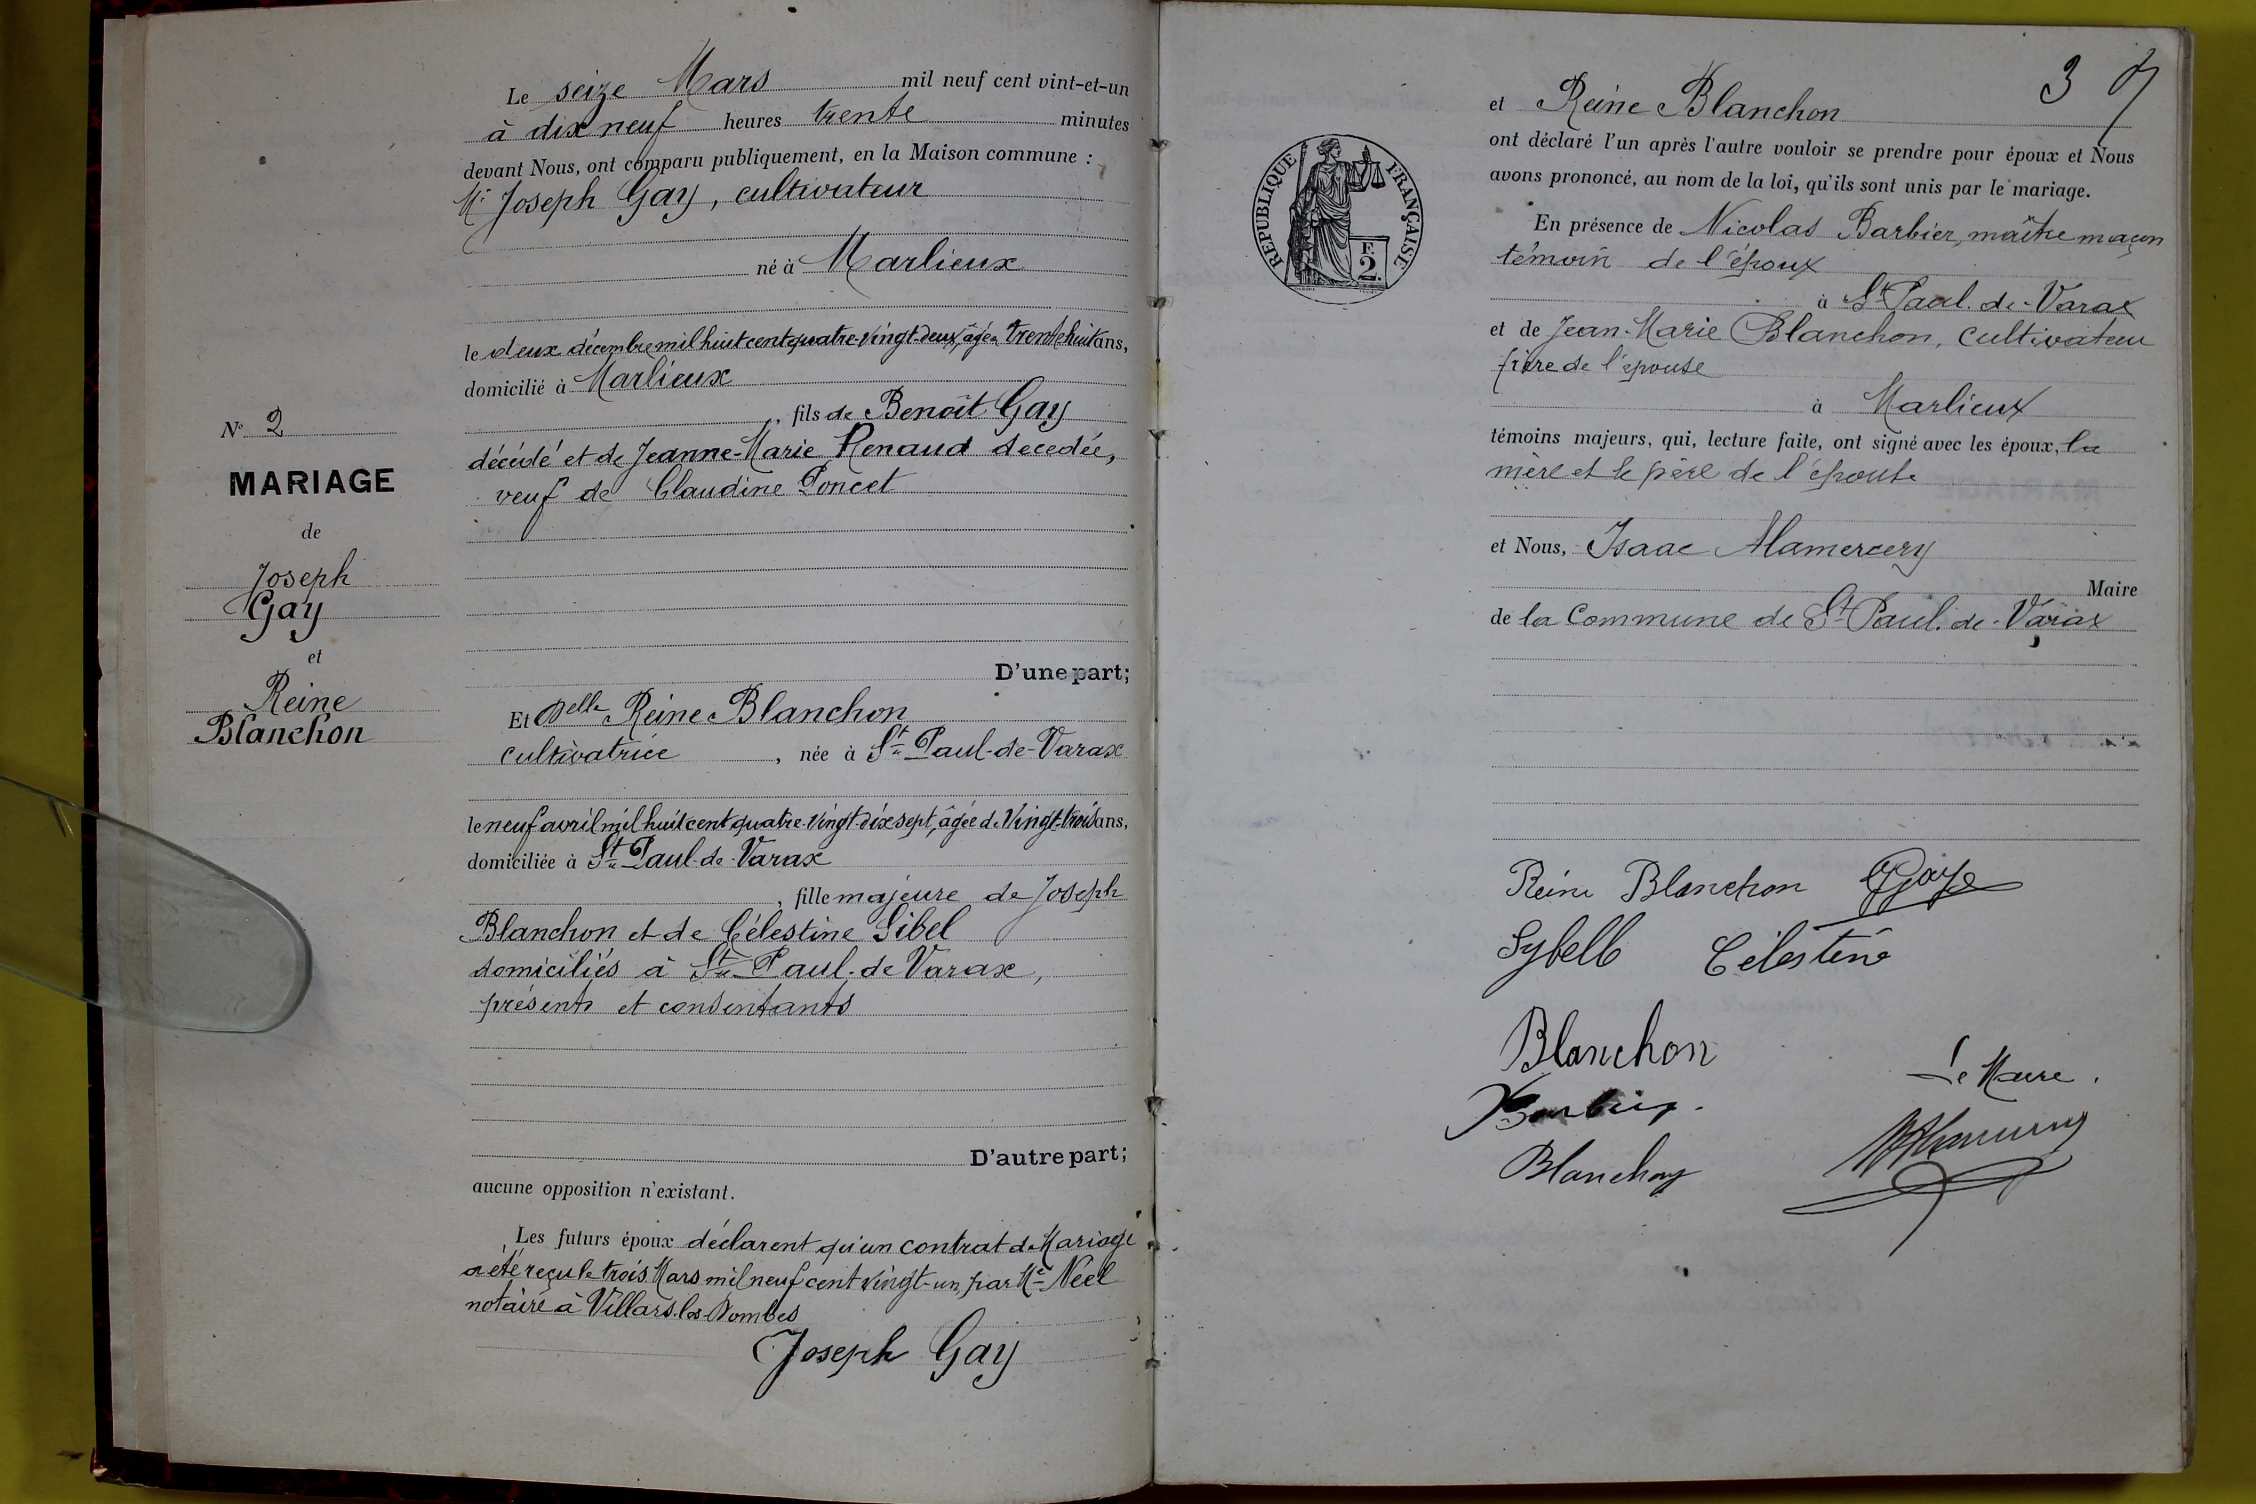 Le seize Mars mil neuf cent vint-et-un
à dix neuf heures trente minutes
devant Nous, ont comparu publiquement, en la Maison commune :
Mr Joseph Gay, cultivateur
né à Marlieux
le deux décembre mil huit cent quatre-vingt-deux, âgé de trente huit ans,
domicilié à Marlieux
, fils de Benoît Gay
décédé et de Jeanne-Marie Renaud decedée,
veuf de Claudine Poncet
D'une part;
No 2
MARIAGE
de
Joseph
Gay
et
Reine
Blanchon
Et Delle Reine Blanchon
cultivatrice, née à St Paul-de-Varax
le neuf avril mil huit cent quatre-vingt-dix sept, âgée de Vingt-trois ans,
domiciliée à St Paul-de-Varax
, fille majeure de Joseph
Blanchon et de Célestine Sibel
domiciliés à St Paul-de Varax,
présents et consentants
D'autre part;
aucune opposition n'existant.
Les futurs époux déclarent qu'un contrat de Mariage
a été reçu le trois Mars mil neuf cent vingt-un, par Me Néel
notaire à Villars-les-Dombes
Joseph Gay
3
et Reine Blanchon
ont déclaré l'un après l'autre vouloir se prendre pour époux et Nous
avons prononcé, au nom de la loi, qu'ils sont unis par le mariage.
REPUBLIQUE FRANÇAISE
F.
2.
En présence de Nicolas Barbier, maître maçon
témoin de l'époux
à St Paul-de-Varax
et de Jean-Marie Blanchon, cultivateur
frère de l'épouse
à Marlieux
témoins majeurs, qui, lecture faite, ont signé avec les époux, la
mère et le père de l'épouse
et Nous, Isaac Mamercery
Maire
de la Commune de St Paul-de-Varax
Reine Blanchon Gay
Sybelle Célestine
Blanchon
Barbier.
Le Maire.
Blanchon